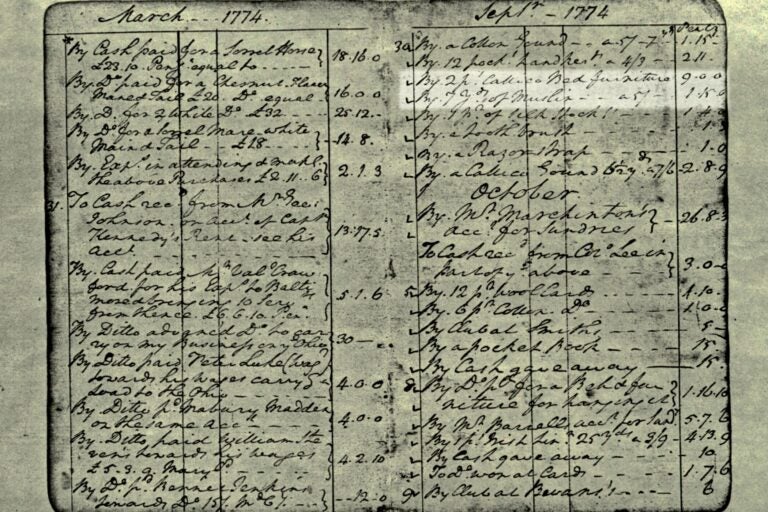 March — 1774.
By Cash paid for a Sorrel Horse
£23.10 Penᵃ equal to - - - 18.16.0
By Dᵒ paid for a Chesnut
Mane & Tail £20. Dᵒ equal - 16.0.0
By Dᵒ for 2 White Dᵒ £32 - - - 25.12.-
By Dᵒ for a Sorrel Mare white
Main & Tail - £18 - - - 14.8.
By Expˢ in attending & makᵍ
the above Purchases £2.11.6 2.1.3
31. To Cash recᵈ from Mʳ
Johnson on accᵗ of Captⁿ
Kennedy's Rent - see his
accᵗ - - - 13.17.5
By Cash paid Mʳ Valᵉ Craw
ford for his Expˢ to Balti
more & bringing 10 Servᵗˢ
from thence £6.6.10 Pen. 5.1.6
By Ditto advanced Dᵒ to car
ry on my Business on yᵉ Ohio 30 —
By Ditto paid Peter Luke
towards his wages carryᵍ a
Load to the Ohio - - - 4.0.0
By Ditto pᵈ Mabury Madden
on the same accᵗ - - - 4.0.0
By Ditto paid William Ste
vens towards his wages
£5.3.9 Marylᵈ - - - 4.2.10
By Dᵒ pᵈ Jenkins
towards Dᵒ 15/. Mᵈ Cʸ. - - - 12.0
Septʳ — 1774
30 By a Cotton Gound - - a 57-7 1.15-
By 12 pockᵗ handkesᵗ a 4/3 - 2.11
By 2 pˢ Callico Bed furniture 9.0.0
By 7 yᵈˢ of Muslin - - a 5/ 1.15.0
By of Silk Stockᵍˢ - 1.4.0
By a Tooth brush - - -
By a Razor Strap - - - 1.0
By a Callico Gound a 7/6 - 2.8.9
October
By Mʳ Marchinton's
accᵗ for Sundries - 26.8.3
To Cash recᵈ from Colᵒ Lee in
part of yᵉ above - - - 3.0.0
5 By 12 pʳ Wool Cards - - 1.10
By 6 pʳ Cotton Dᵒ - - 1.0.0
By Club at Smiths - - - 5 -
By a pocket Book - - - 15
By Cash gave away - - - 15.
8 By Dᵒ pᵈ for a Bell & fur
niture for hanging it 1.16.10
By Mʳ Barrell's accᵗ for Sundˢ 5.7.6
By 1 pˢ Irish Linⁿ 25 3/4 a 3/9 - 4.13.9
By Cash gave away - - - 10
To Dᵒ won at Cards - - - 1.7.6
9 By Club at Bevans's - - - 6